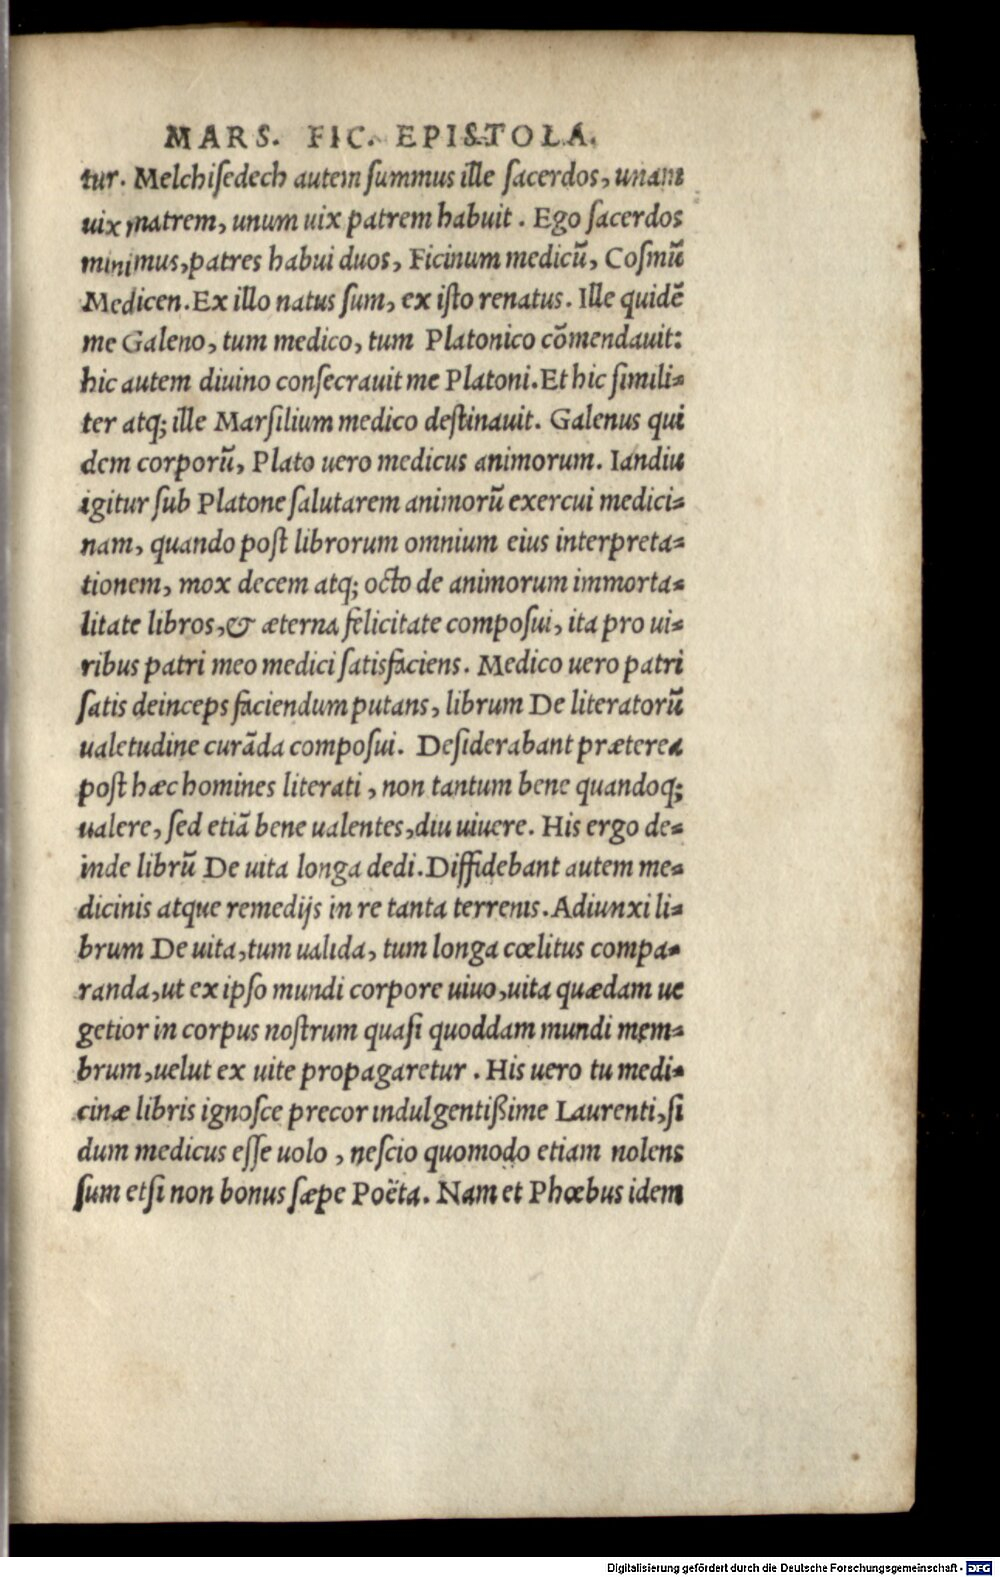 MARS. FIC. EPISTOLA.
tur. Melchiſedech autem ſummus ille ſacerdos, unam
uix matrem, unum uix patrem habuit. Ego ſacerdos
minimus, patres habui duos, Ficinum medicũ, Coſmũ
Medicen. Ex illo natus ſum, ex iſto renatus. Ille quidẽ
me Galeno, tum medico, tum Platonico cõmendauit:
hic autem diuino conſecrauit me Platoni. Et hic ſimili-
ter atq; ille Marſilium medico deſtinauit. Galenus qui
dem corporũ, Plato uero medicus animorum. Iandiu
igitur ſub Platone ſalutarem animorũ exercui medici-
nam, quando poſt librorum omnium eius interpreta-
tionem, mox decem atq; octo de animorum immorta-
litate libros, & æterna felicitate compoſui, ita pro ui-
ribus patri meo medici ſatisfaciens. Medico uero patri
ſatis deinceps faciendum putans, librum De literatorũ
ualetudine curãda compoſui. Deſiderabant præterea
poſt hæc homines literati, non tantum bene quandoq;
ualere, ſed etiã bene ualentes, diu uiuere. His ergo de-
inde librũ De uita longa dedi. Diffidebant autem me-
dicinis atque remedijs in re tanta terrenis. Adiunxi li-
brum De uita, tum ualida, tum longa cœlitus compa-
randa, ut ex ipſo mundi corpore uiuo, uita quædam ue
getior in corpus noſtrum quaſi quoddam mundi mem-
brum, uelut ex uite propagaretur. His uero tu medi-
cinæ libris ignoſce precor indulgentißime Laurenti, ſi
dum medicus eſſe uolo, neſcio quomodo etiam nolens
ſum etſi non bonus ſæpe Poëta. Nam et Phœbus idem
Digitalisierung gefördert durch die Deutsche Forschungsgemeinschaft - DFG